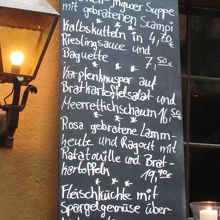 Ingwer Suppe
mit gebratenen Scampi
Kalbskutteln in 4,70
Rieslingsauce und
Baguette 7,50
Karpfenknusper auf
Bratkartoffelsalat und
Meerettichschaum 10,50
Rosa gebratene Lamm-
keule und Ragout mit
Ratatouille und Brat-
kartoffeln 19,90
Fleischküchle mit
Spargelgemüse über-